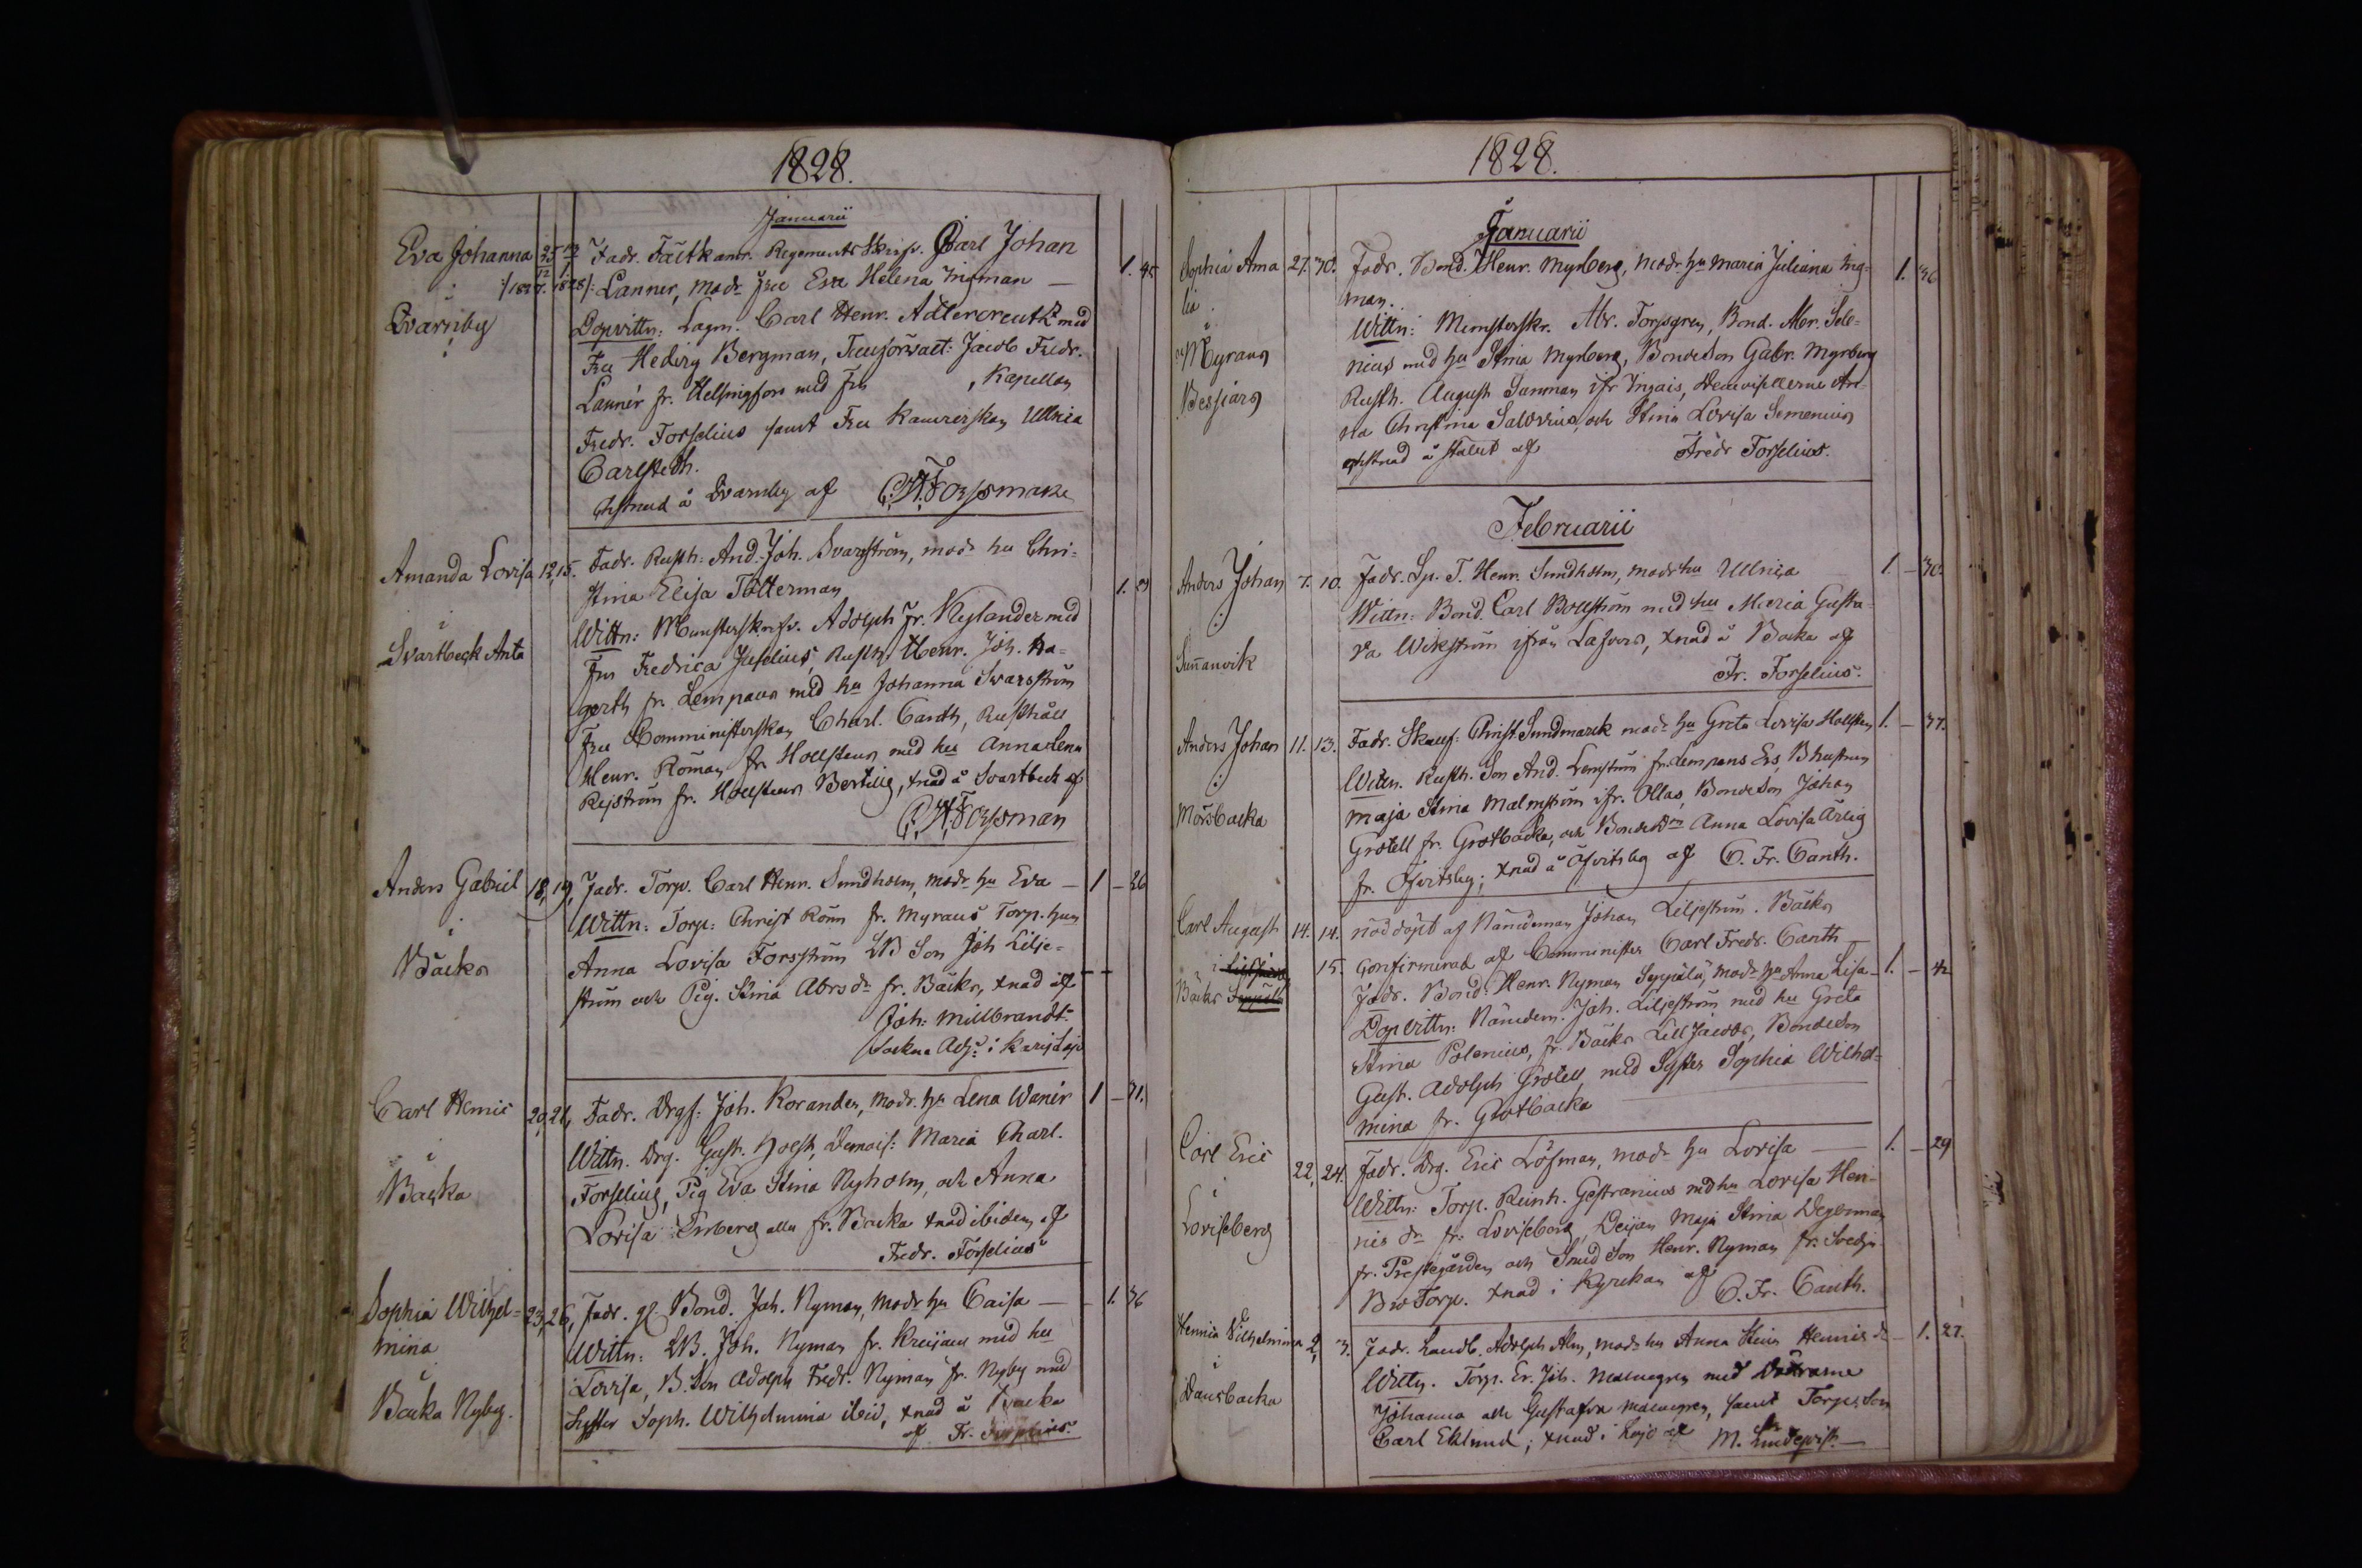 1828.
Januarii
Eva Johanna 25/12 1827. 1/1 1828 Fadr. Fältkamr. Regements Skrifv. Carl Johan
Lanner, modr Fru Eva Helena Ingman — 1. 45
i
Qvarnby
Dopvittn: Lagm. Carl Henr. Adlercreutz med
Fru Hedvig Bergman, Jacob Fredr.
Lannér fr. Helsingfors med Fru , Kapellan
Fredr. Forselius samt Fru Kamrerskan Ullrica
Carlstedt.
Christnad å Qvarnby af C. H. Forssman
Amanda Lovisa 12, 15. Fadr. Rusth. And. Joh. Svarfström, modr hu Chri=
stina Elisa Tötterman 1.
i
Svartbeck Anta
Wittn: Munsterskrifv. Adolph Fr. Nylander med
Fru Fredrica Juselius, Rusth. Henr. Joh. Ra=
gerth fr. Lempans med hu Johanna Svarfström
Fru Comministerskan Charl. Canth, Rusthåll
Henr. Röman fr. Hollstens med hu Anna Lena
Rejström fr. Hollstens Bertills, xnad å Svartbeck af
C. H. Forssman
Anders Gabriel 18, 19, Fadr. Torp. Carl Henr. Sundholm, modr hu Eva — 1 — 26
i
Bäcks
Wittn: Torp: Christ Rönn fr. Myrans Torp.
Anna Lovisa Forsström LB Son Joh Lilje=
ström och Pig. Stina Abrs dr fr. Bäcks, xnad af
Joh: Millbrandt.
Sockne Adj. i Karislojo
Carl Henric 20, 21, Fadr. Drgf. Joh. Korander, modr. hu Lena Wanér 1 — 31.
i
Backa
Wittn. Drg. Gust. Holst, Demois: Maria Charl.
Forselius, Pig Eva Stina Nyholm, och Anna
Lovisa Enberg alla fr. Backa xnad ibidem af
Fredr. Forselius
Sophia Wilhel= 23, 26, Fadr. Bond. Joh. Nyman, modr hu Caisa — 1. 36
mina
i
Backa Nyby.
Wittn: LB. Joh. Nyman fr. med hu
Lovisa, B. Son Adolph Fredr. Nyman fr. Nyby med
Syster Soph. Wilhelmina ibid, xnad å Backa
af Fr. Forselius.
1828.
Januarii
Sophia Ama 27. 30. Fadr. Bond. Henr. Myrberg, modr hu Maria Juliana Ing= 1. 36
lia man.
i
Myrans
Bessjars
Wittn: Munsterskr. Abr. Forsgren, Bond. Abr. Sele=
nius med hu Stina Myrberg, Bonde Son Gabr. Myrberg
Rusth. August Sanman ifr Ingais, Demoisellerne An=
na Christina Salovius, och Stina Lovisa Simenius
christnad å stället af Fredr Forselius.
Februarii
Anders Johan 7. 10. Fadr. Sp. T. Henr. Sundholm, modr hu Ullrica 1. — 30.
i
Sunnanvik
Wittn: Bond. Carl Bollström med hu Maria Gusta
va Wikström ifrån Lassers, xnad å Backa af
Fr. Forselius.
Anders Johan 11. 13. Fadr. Skauf: Christ. Sundmark modr hu Greta Lovisa Hollsten 1. — 37.
i
Morsbacka
Wittn. Rusth. Son And. Lemström fr. Lempans Ers,
Maja Stina Malmström ifr. Ollas, Bonde Son Johan
Grotell fr. Grotbacka, och Bonde Dn Anna Lovisa Ärlig
fr. Öfvitsby; xnad å Öfvitsby af C. Fr. Canth.
Carl August 14. 14. nöddöpt af Nämdeman Johan Liljeström. Bäcks
i
Bäcks Seppälä
15. Confirmerad af Comminister Carl Fredr. Canth
Fadr. Bond. Henr. Nyman Seppälä, modr hu Anna Lisa 1. — 42
Dopvittn: Nämdem. Joh. Liljeström med hu Greta
Stina Polenius, fr. Bäcks Lill Jacobs, Bonde Son
Gust. Adolph Grotell med Syster Sophia Wilhel=
mina fr. Grotbacka
Carl Eric 22, 24. Fadr. Drg. Eric Löfman, modr hu Lovisa — 1. — 29
i
Loviseberg
Wittn: Torp. Reinh. Gestranius med hu Lovisa Hen=
rics dr fr. Loviseberg, Peijan Maja Stina Degerman
fr. Prestegården och Smed Son Henr. Nyman fr. Svedja
Bro Torp. xnad i Kyrckan af C. Fr. Canth.
Henrica Vilhelmina 2, 3. Fadr. Landb. Adolph Alm, modr hu Anna Stina Henrics dr — 1. 27.
i
Dansbacka
Wittn. Torp. Er. Joh. Malmgren med Döttrarne
Johanna och Gustafva Malmgren, samt Torp. Son
Carl Eklund; xnad i Lojo af M. Lindeqvist. —